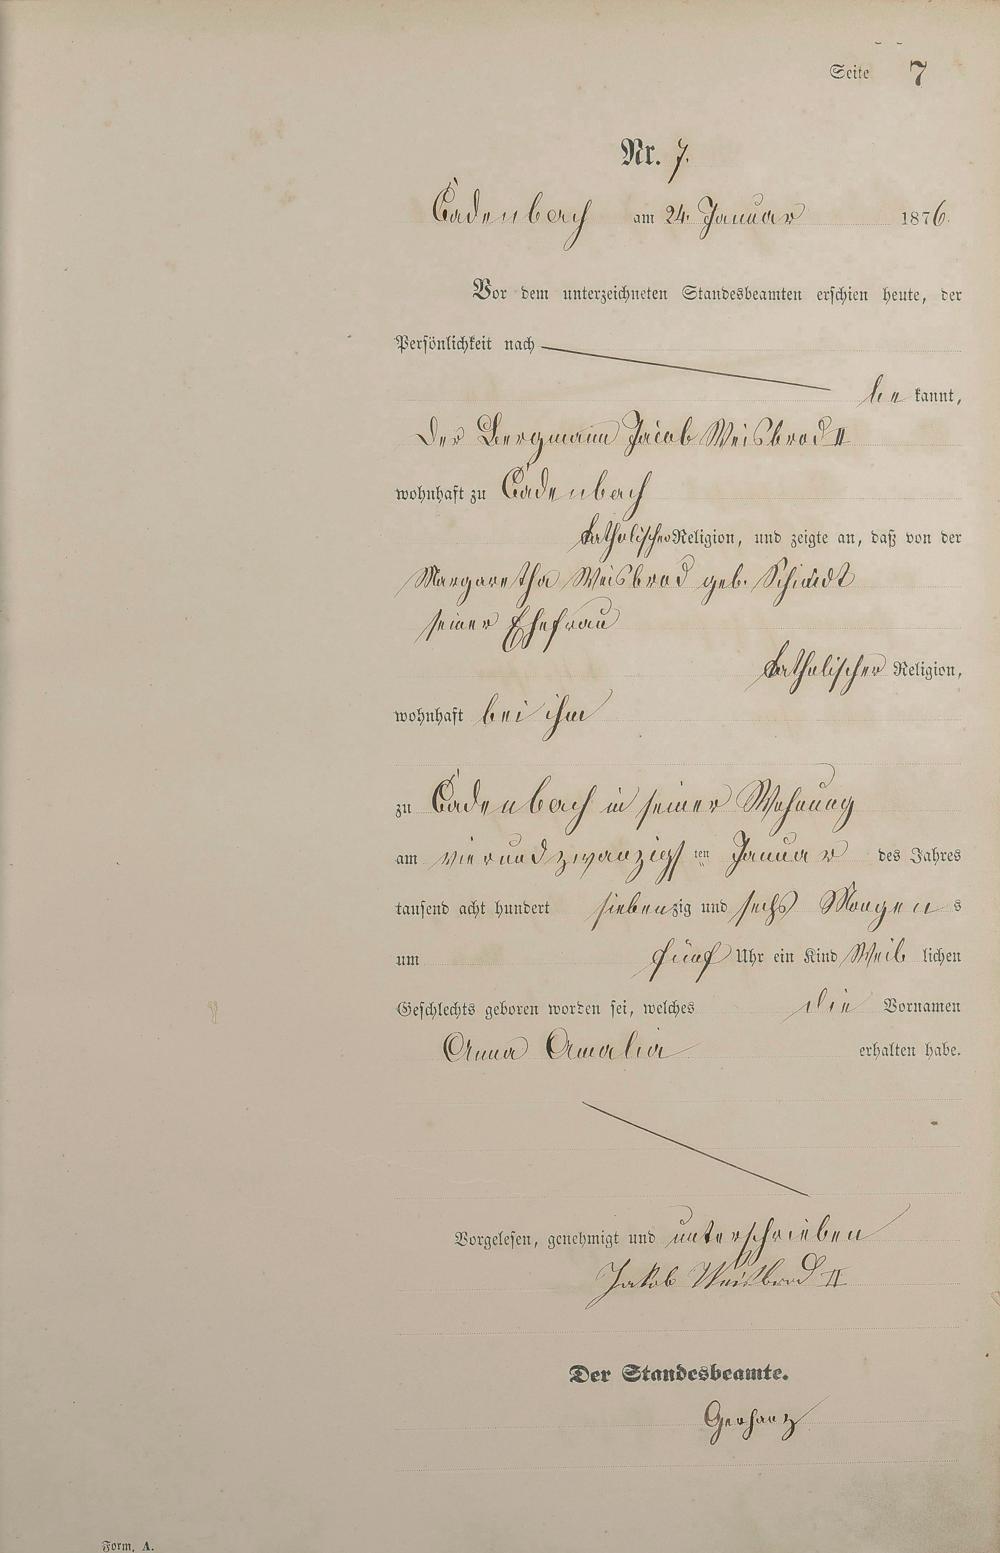 Seite 7
Nr. 7.
Cadenbach am 24. Januar 1876.
Vor dem unterzeichneten Standesbeamten erschien heute, der
Persönlichkeit nach
be kannt,
der Bergmann Jacob Weisbrod II
wohnhaft zu Cadenbach
katholischer Religion, und zeigte an, daß von der
Margaretha Weisbrod geb. Schmidt
seiner Ehefrau
katholischer Religion,
wohnhaft bei ihm
zu Cadenbach in seiner Wohnung
am vierundzwanzigs ten Januar des Jahres
tausend acht hundert siebenzig und sechs Morgen s
um fünf Uhr ein Kind Weib lichen
Geschlechts geboren worden sei, welches die Vornamen
Anna Amalia erhalten habe.
Vorgelesen, genehmigt und unterschrieben
Jakob Weisbrod II
Der Standesbeamte.
Gerhartz
Form. A.